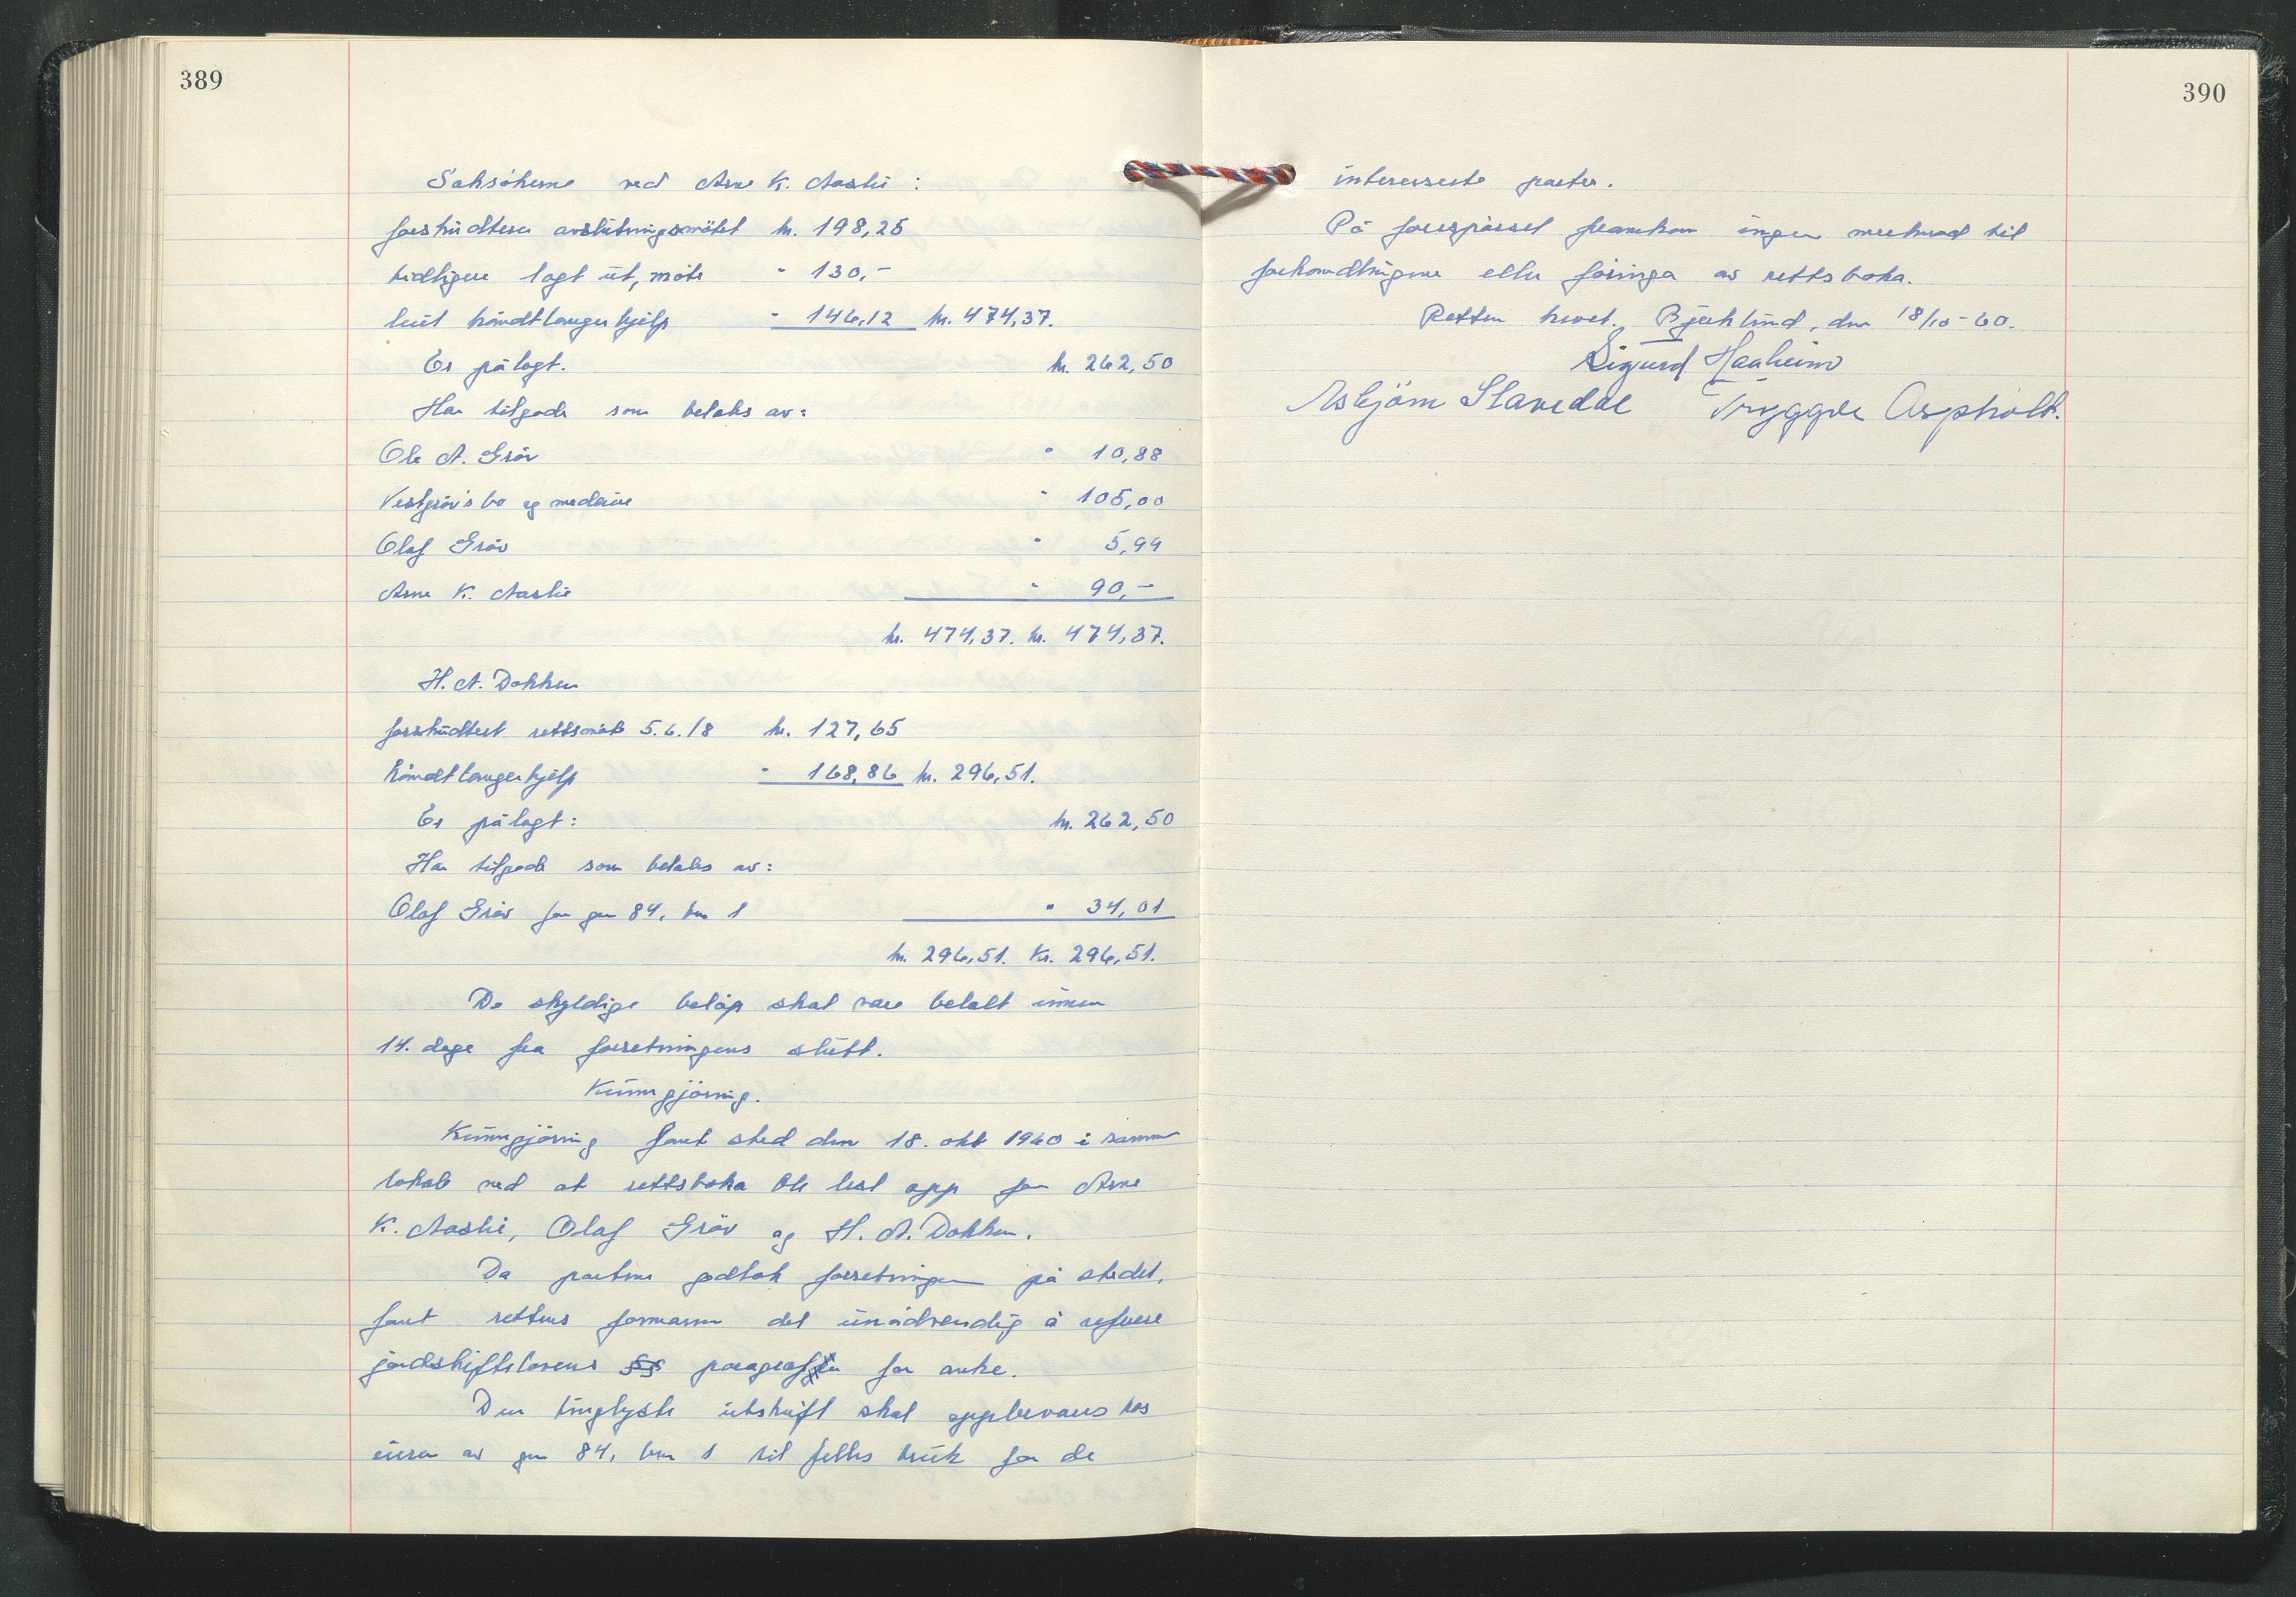 389
Saksökerne ved Arne K. Aaslie :
forskudtera avslutningsmötet kr. 198,25
tidligere lagt ut, möte " 130,-
leiet håndtlangerhjelp " 146,12 kr. 474,37.
Er pålagt. kr. 262,50
Har tilgode som betales av:
Ole A. Gröv " 10,88
Vestgröv's bo og medeiere " 105,00
Olaf Gröv " 5,99
Arne K. Aaslie " 90,-
kr. 474,37. kr. 474,37.
H. A. Dokken
forskudtert rettsmöte 5.6./8 kr. 127,65
håndtlangerhjelp " 168,86 kr. 296,51.
Er pålagt: kr. 262,50
Har tilgode som betales av:
Olaf Gröv for gnr 84, bnr 1 " 34,01
kr. 296,51. Kr. 296,51.
De skyldige belöp skal være betalt innen
14. dage fra forretningens slutt.
Kunngjöring.
Kunngjöring fant sted den 18. okt 1960 i samme
lokale ved at rettsboka ble lest opp for Arne
K. Aaslie, Olaf Gröv og H. A. Dokken.
Da partene godtok forretningen på stedet,
fant rettens formann det unödvendig å referere
jordskiftelovens §§ paragrafer for anke.
Den tinglyste utskrift skal oppbevares hos
eieren av gnr 84, bnr 1 til felles bruk for de
390
interesserte parter.
På forespörsel framkom ingen merknad til
forhandlingene eller föringa av rettsboka.
Retten hevet. Bjerklund, den 18/10-60.
Sigurd Haaheim
Asbjörn Slavedal Tryggve Aspholt.